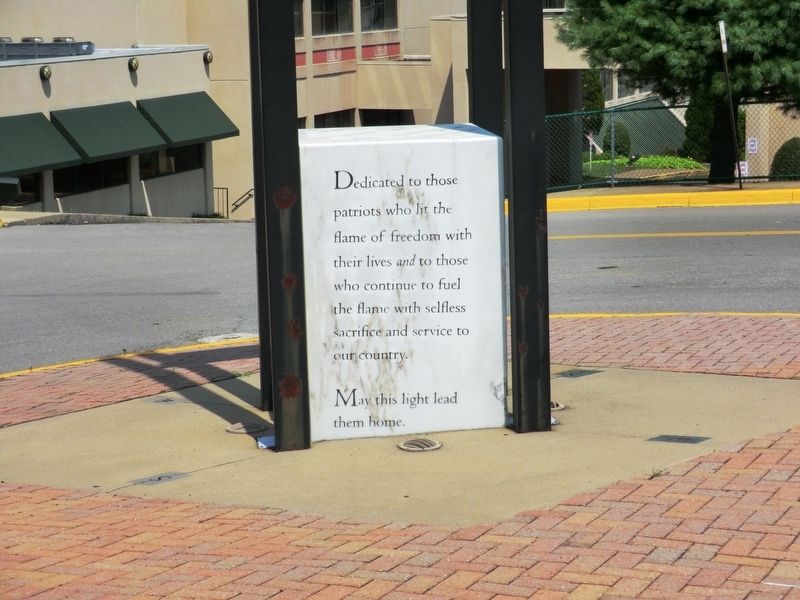 Dedicated to those
patriots who lit the
flame of freedom with
their lives and to those
who continue to fuel
the flame with selfless
sacrifice and service to
our country.
May this light lead
them home.